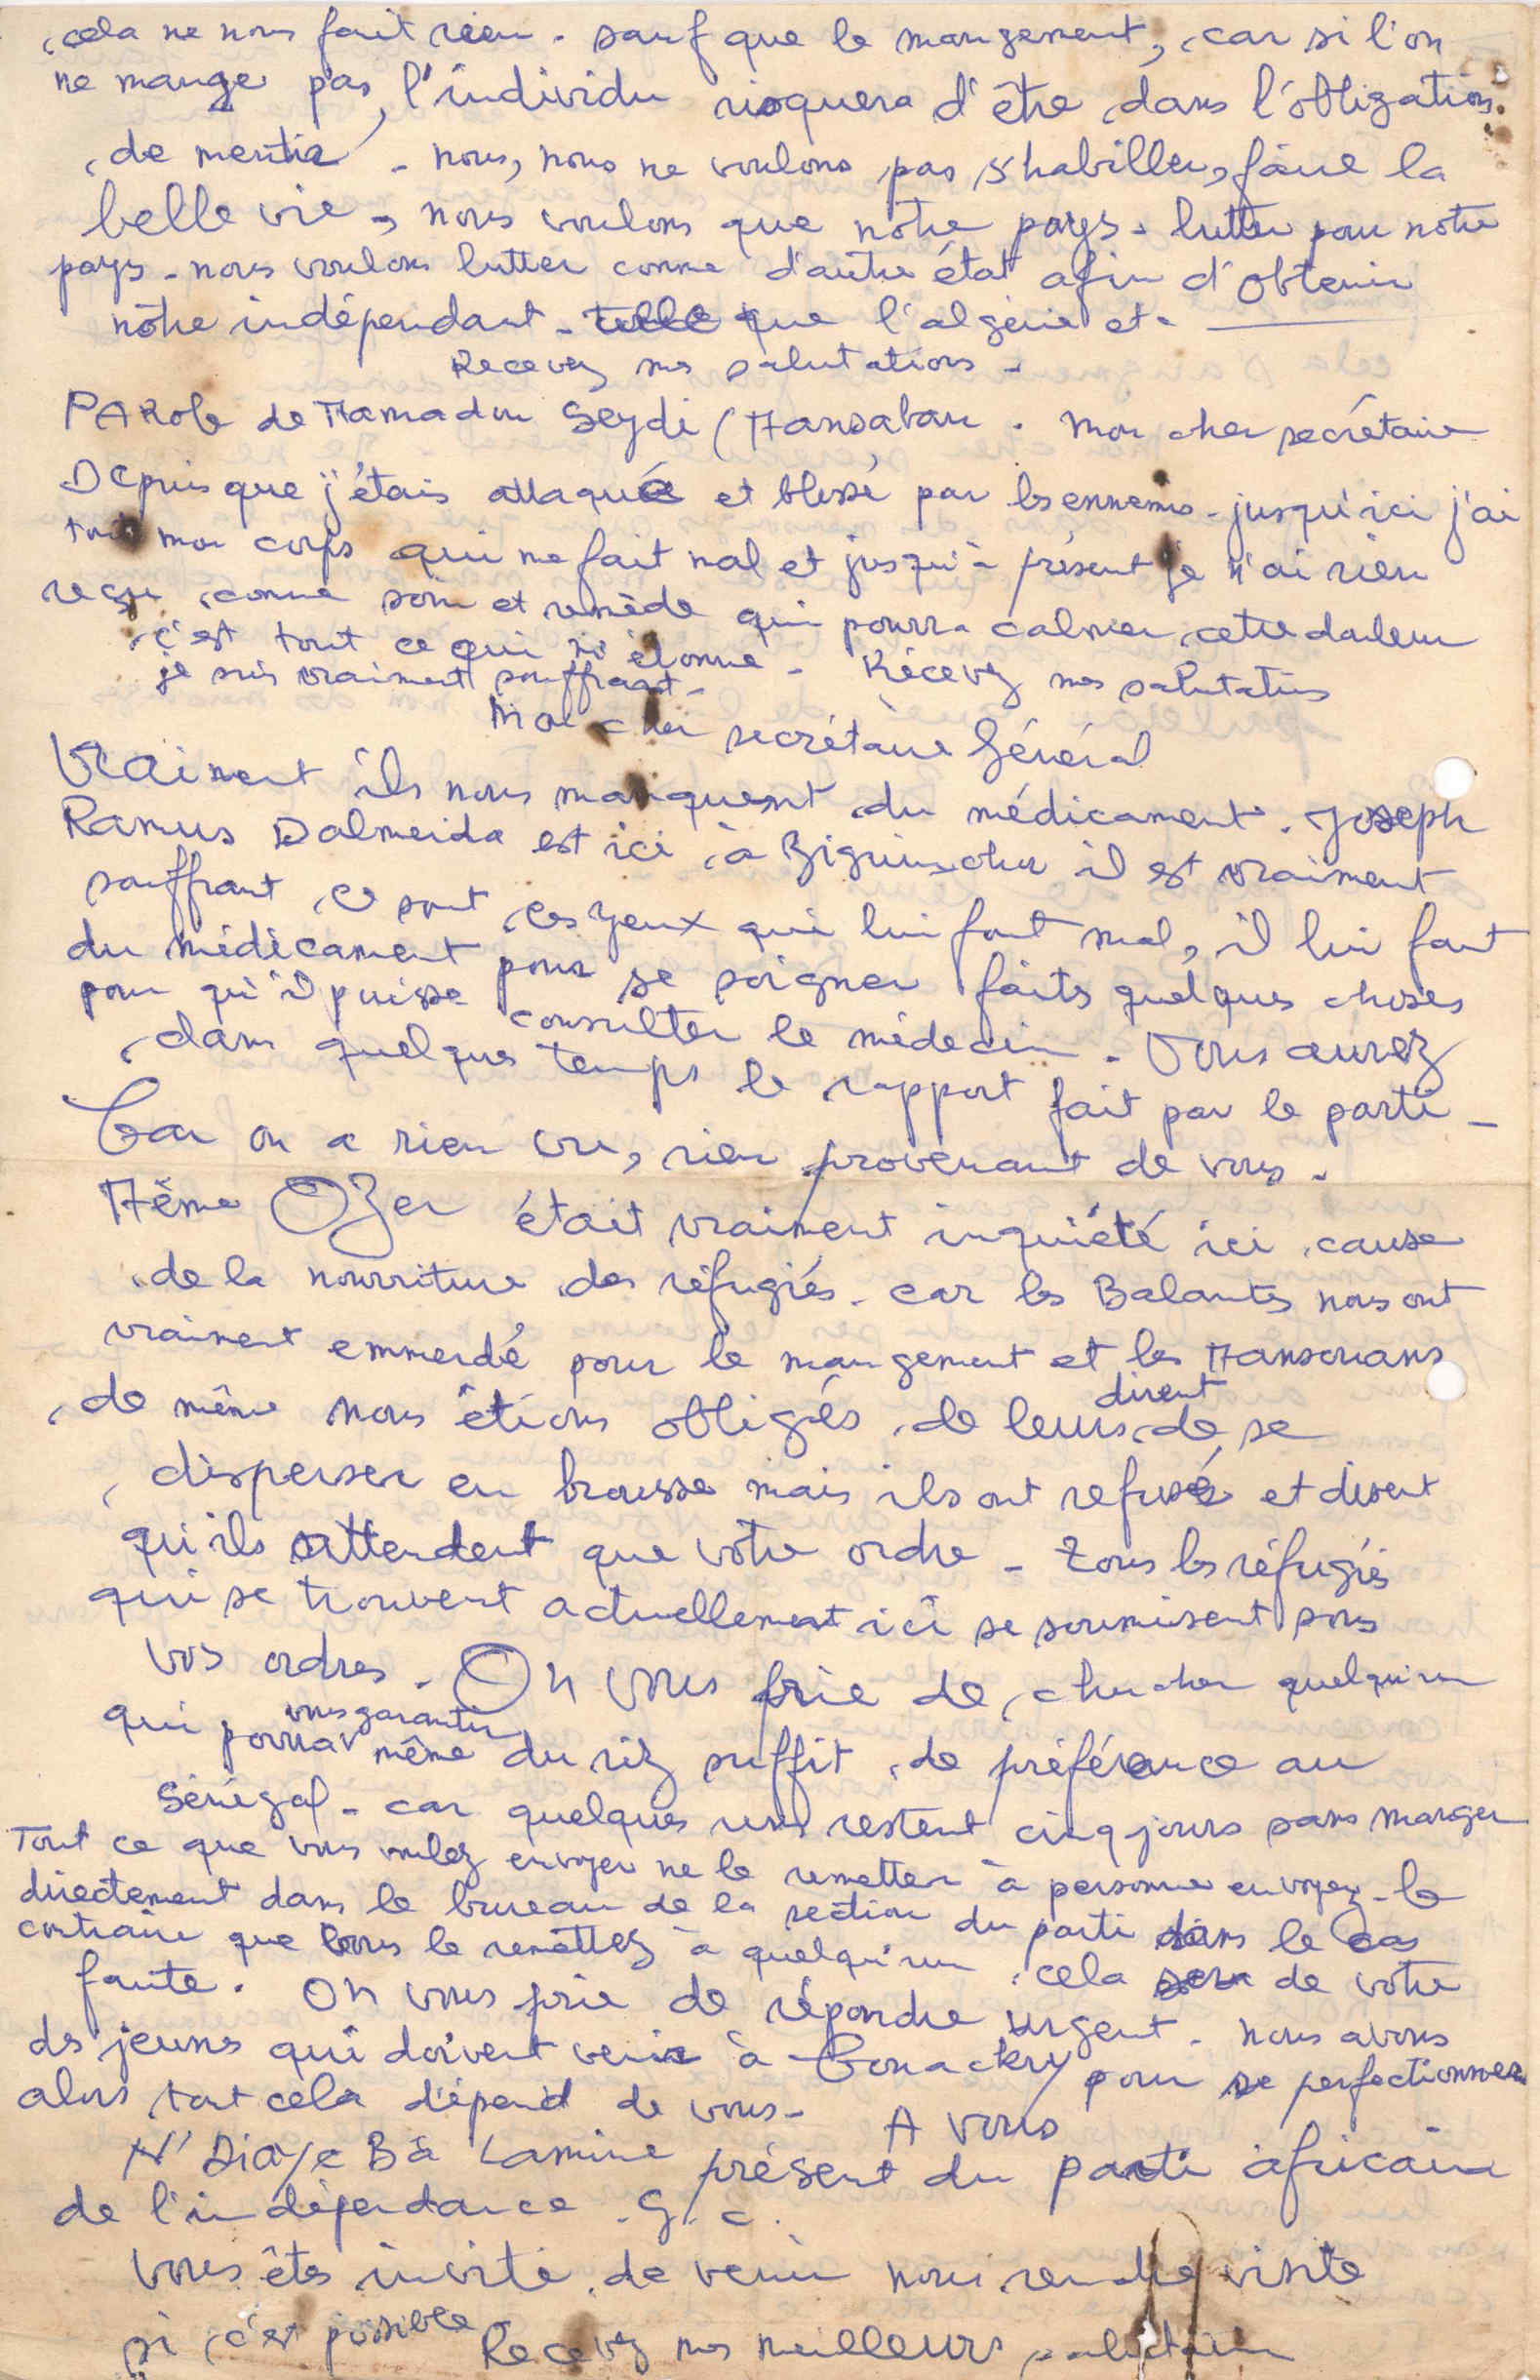 cela ne nous fait rien - sauf que le mangement, car si l'on
ne mange pas, l'individu risquera d'être dans l'obligation
de mentir - nous, nous ne voulons pas s'habiller, faire la
belle vie, nous voulons que notre pays - lutter pour notre
pays - nous voulons lutter comme d'autre état afin d'obtenir
nôtre indépendant - telle que l'algérie et -
Recevez mes salutations -
PARole de Mamadou Seydi (Mansabau . Mon cher secrétaire
Depuis que j'étais attaqué et blessé par les ennemis - jusqu'ici j'ai
tout mon corps qui me fait mal et jusqu'à présent je n'ai rien
reçu comme soin et remède qui pourra calmer cette douleur
c'est tout ce qui m'étonne - Récevez mes salutations
je suis vraiment souffrant -
Mon cher secrétaire Général
Vraiment ils nous manquent du médicament. Joseph
Ramus Dalmeida est ici à Ziguinchor il est vraiment
souffrant ce sont ces yeux qui lui font mal, il lui faut
du médicament pour se soigner faits quelques choses
pour qu'il puisse consulter le médecin - Vous aurez
dans quelques temps le rapport fait par le parti -
Car on a rien vu, rien provenant de vous -
Même OZer était vraiment inquiété ici cause
de la nourriture des réfugiés - car les Balantes nous ont
vraiment emmerdé pour le mangement et les Mansouans
de même nous étions obligés de leurs dirent de se
disperser en brousse mais ils ont refusé et disent
qu'ils attendent que votre ordre - Tous les réfugiés
qui se trouvent actuellement ici se soumisent sous
vos ordres - On vous prie de chercher quelqu'un
qui pourra vous garantir même du riz suffit de préférence au
Sénégal - car quelques uns restent cinq jours sans manger
Tout ce que vous voulez envoyer ne le remetter à personne envoyez - le
directement dans le bureau de la section du parti dans le cas
contraire que vous le remettez à quelqu'un cela sera de votre
faute. On vous prie de répondre urgent - nous avons
des jeunes qui doivent venir à Conackry pour se perfectionner
alors tout cela dépend de vous - A vous
N'Diaye Bâ Lamine présent du parti africain
de l'indépendance . G. C.
Vous êtes invité de venir nous rendre visite
si c'est possible Recevez mes meilleurs salutation